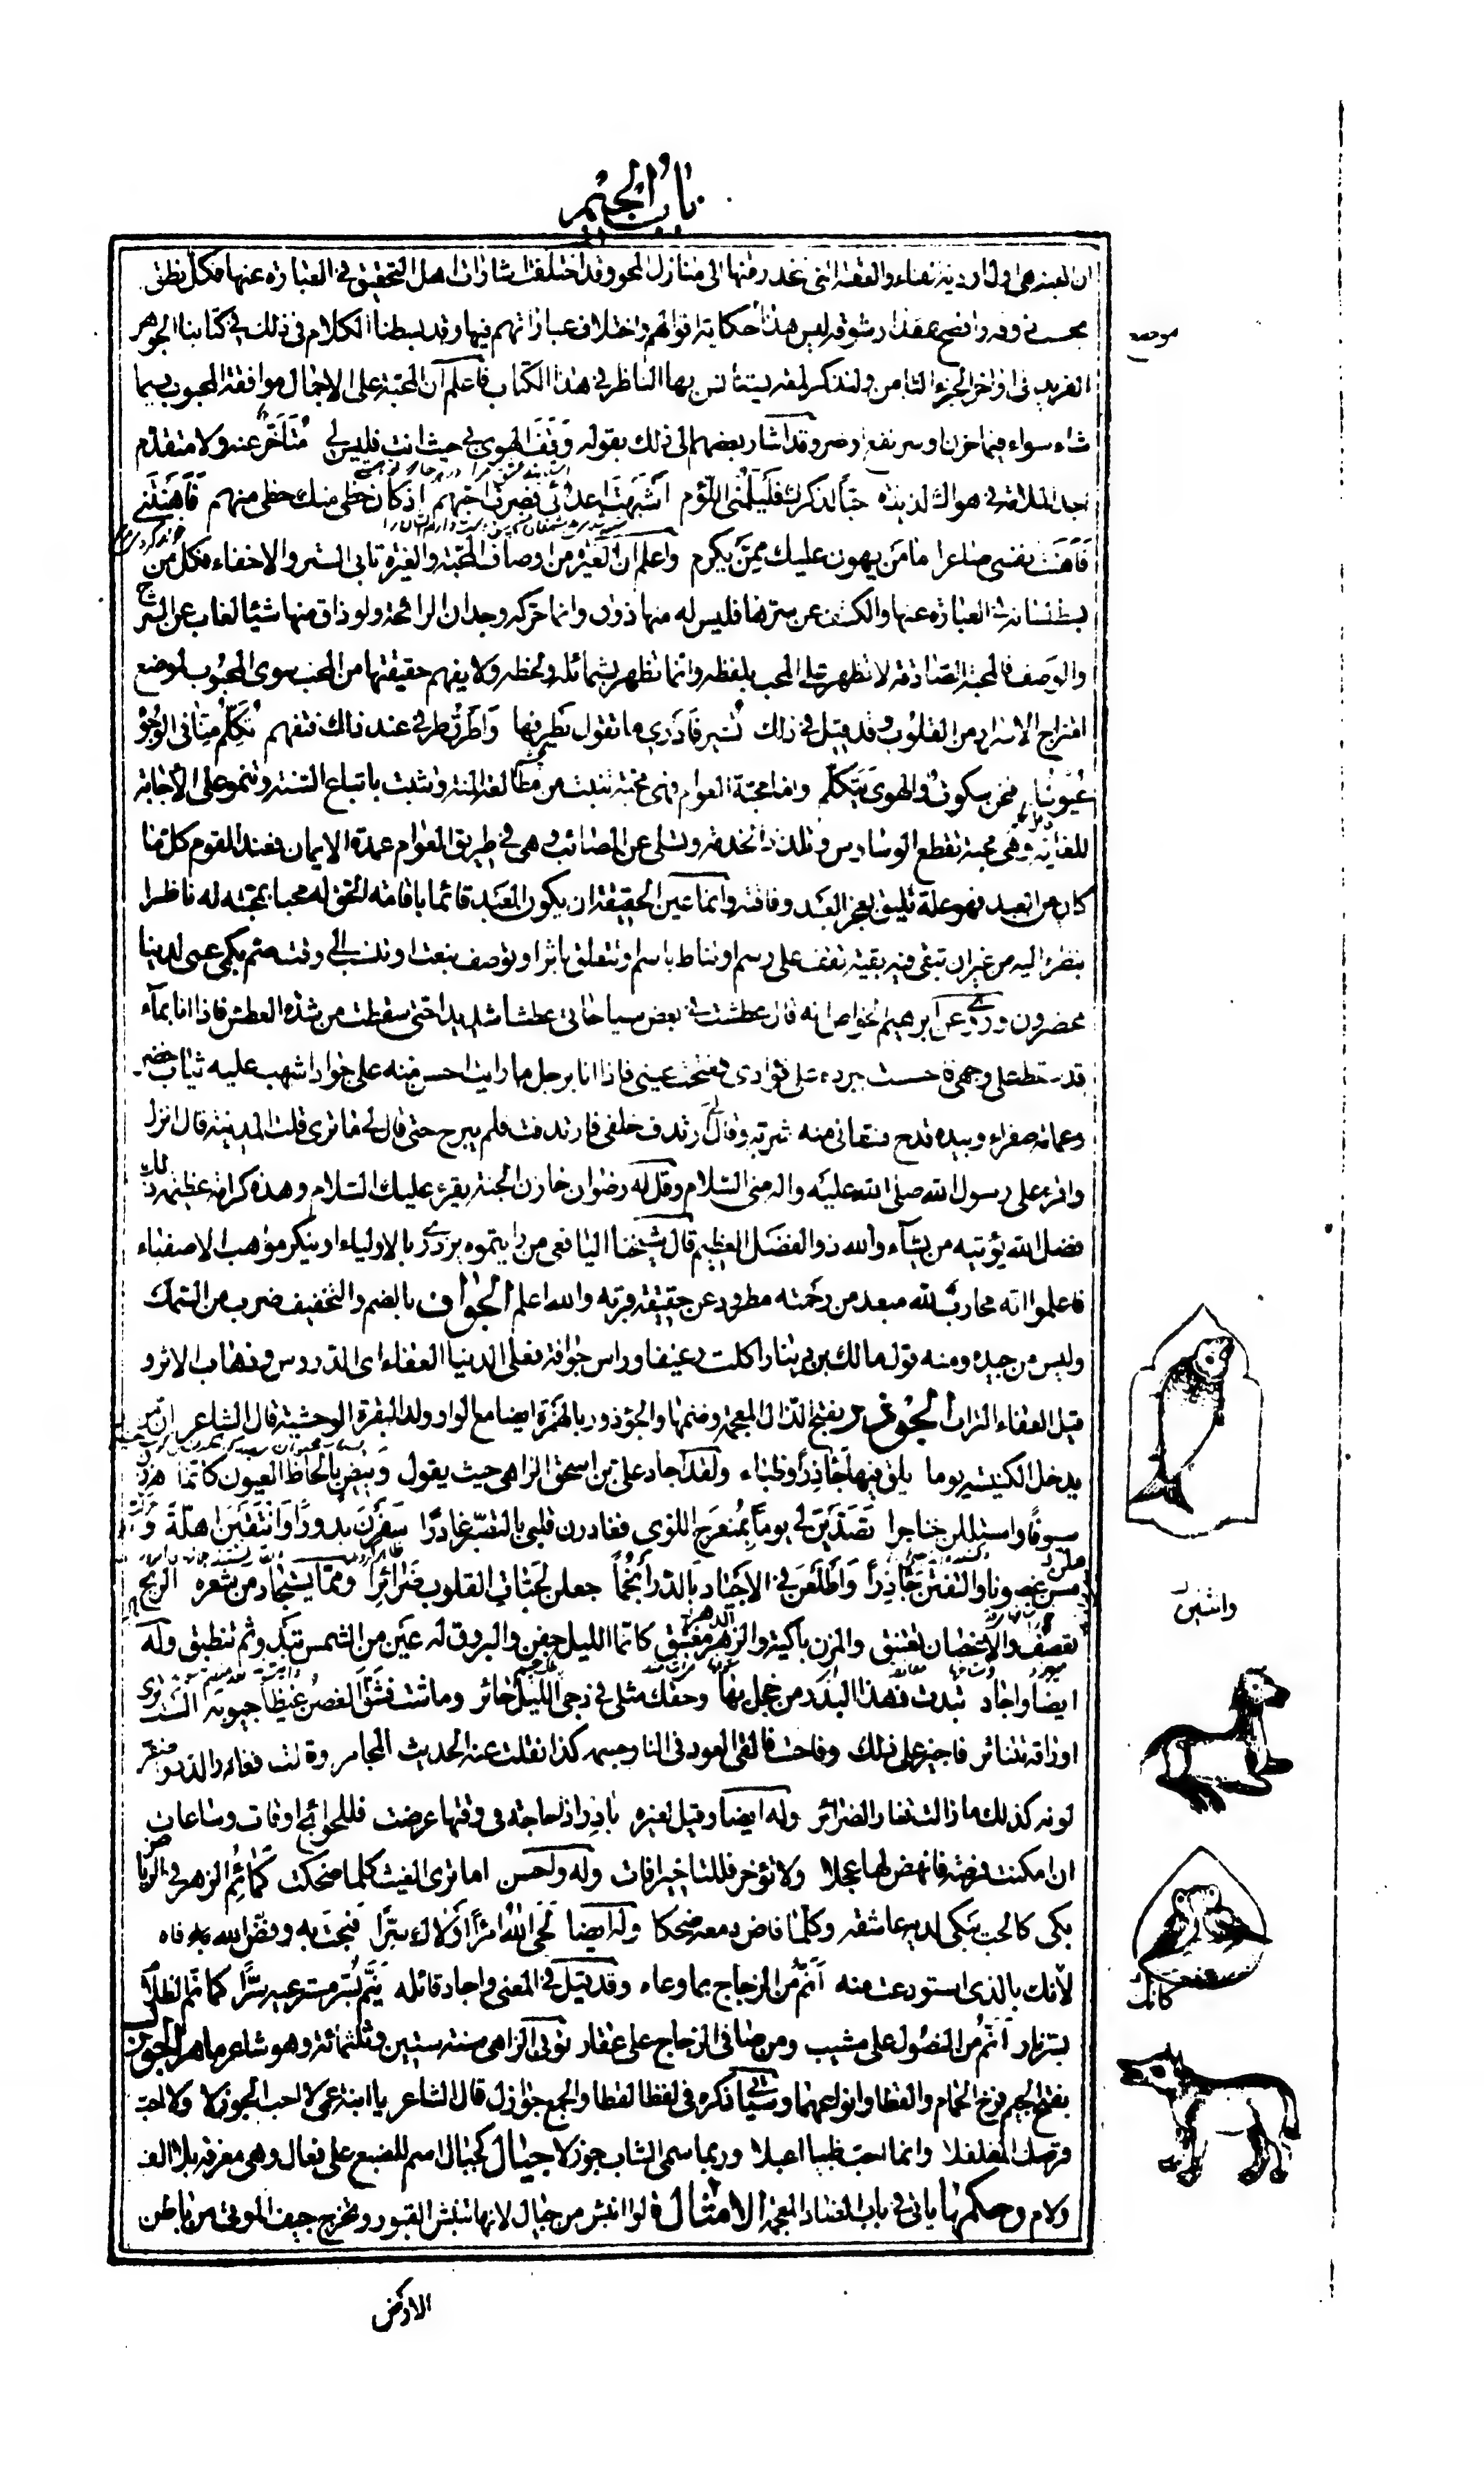 باب الجيم
ان المحبة هي اول اودية الفناء والعقبة التى ينحدر منها الى منازل المحو وقد اختلفت اشارات اهل التحقيق فى العبارة عنها فكل نطق
بحسب ذوقه وافصح بمقدار شوقه ليس هذا حكاية اقوالهم واختلاف عباراتهم فيها وقد بسطنا الكلام فى ذلك فى كتابنا الجوهر
الفريد فى اواخر الجزء الثامن ولنذكر لمعة ليستأنس بها الناظر فى هذا الكتاب فاعلم ان المحبة على الاجمال موافقة المحبوب فيما
شاء سواء فيما حزن او سر نفع او ضر وقد اشار بعضهم الى ذلك بقوله وقف الهوى بي حيث انت فليس لي متأخر عنه ولا متقدم
اجد الملامة فى هواك لذيذة حبا لذكرك فليلمنى اللوم اشبهت اعدائى فصرت احبهم اذ كان حظى منك حظى منهم فأهنتنى
فأهنت نفسى صاغرا ما من يهون عليك ممن يكرم واعلم ان الغيرة من اوصاف المحبة والغيرة تابى الستر والاخفاء فكل من
بسط لسانه فى العبارة عنها والكشف عن سترها فليس له منها ذوق وانما حركه وجدان الرائحة ولو ذاق منها شيئا لغاب عن الشرح
والوصف فالمحبة الصادقة لا تظهر على المحب بلفظه وانما تظهر بشمائله ولحظه ولا يفهم حقيقتها من المحب سوى المحبوب لوضع
امتزاج الاسرار من القلوب وقد قيل فى ذلك تشير فادرى ما تقول بطرفها واطرق طرفى عند ذاك فتفهم تكلم منا فى الوجوه
عيوننا فنحن سكوت والهوى يتكلم واما محبة العوام فهى محبة تنبت من مطالعة المنة وتثبت باتباع السنة وتنمو على الاجابة
للغاية وهى محبة تقطع الوساوس وتلذذ الخدمة وتسلى عن المصائب وهى فى طريق العوام عمدة الايمان فعند القوم كل ما
كان من العبد فهو علة تليق بعجز العبد وفاقته وانما عين الحقيقة ان يكون العبد قائما باقامة الحق له محبا بمحبته له ناظرا
بنظره اليه من غير ان تبقى فيه بقية تقف على رسم او تناط باسم او تتعلق باثر او توصف بنعت او تنسب الى وقت صم بكم عمى لدينا
محضرون وروى عن ابرهيم الخواص انه قال عطشت فى بعض سياحاتى عطشا شديدا حتى سقطت من شدة العطش فاذا انا بماء
قد سقط على وجهى فاحسست ببرده على فؤادى ففتحت عينى فاذا انا برجل ما رايت احسن منه على جواد اشهب عليه ثياب خضر
وعمامة صفراء وبيده قدح فسقانى منه شربة وقال لى ارتدف خلفى فارتدفت فلم يبرح حتى قال لى ما ترى قلت المدينة قال انزل
واقرء على رسول الله صلى الله عليه واله منى السلام وقل له رضوان خازن الجنة يقرئ عليك السلام وهذه كرامة عظيمة ذلك
فضل الله يؤتيه من يشاء والله ذو الفضل العظيم قال شيخنا اليافعى من رايتموه يزدرى بالاولياء او ينكر مواهب الاصفياء
فاعلموا انه محارب لله مبعد من رحمته مطرود عن حقيقة قربه والله اعلم الجواف بالضم والتخفيف ضرب من السمك
وليس من جيده ومنه قول مالك بن دينار اكلت رغيفا وراس جوافة فعلى الدنيا العفاء اى الدروس وذهاب الاثر و
قيل العفاء التراب الجوذر بفتح الذال المعجمة وضمها والجؤذر بالهمزة ايضا مع الواو ولد البقرة الوحشية قال الشاعر ان من
يدخل الكنيسة يوما يلق فيها جآذرا وظباء ولقد اجاد على بن اسحق الزاهى حيث يقول وبيض بالحاظ العيون كانما هززن
سيوفا واستللن خناجرا تصدين لى يوما بمنعرج اللوى فغادرن قلبى بالتصبر غادرا سفرن بدورا وانتقبن اهلة و
مسن غصونا والتفتن جآذرا واطلعن فى الاجياد بالدر انجما جعلن لحبات القلوب ضرائرا ومما يستجاد من شعره الريح
تعصف والاغصان تعتنق والمزن باكية والزهر مغتبق كانما الليل جفن والبروق له عين من الشمس تبدو ثم تنطبق وله
ايضا واجاد تبدت فهذا البدر من خجل بها وحقك مثلى فى دجى الليل حائر وماست فشق الغصن غيظا جيوبه الست ترى
اوراقه تتناثر فاجيز على ذلك وفاحت فالقى العود فى النار جسمه كذا نقلت عنه الحديث المجامر وقالت فغار الدر واصفر
لونه كذلك ما زالت تغار الضرائر وله ايضا وقيل لغيره بادر اذا حاجة فى وقتها عرضت فللحوائج اوقات وساعات
ان امكنت فرصة فانهض لها عجلا ولا تؤخر فللتاخير افات وله ولحسن اما ترى الغيث كلما ضحكت كمائم الزهر فى الرياض
بكى كالحب يبكى لديه عاشقه وكلما فاض دمعه ضحكا وله ايضا لحى الله امرأ اولاك سرا فبحت به وفض الله فاه
لانك بالذى استودعت منه انم من الزجاج بما وعاه وقد قيل فى المعنى واجاد قائله ينم بسر مسترعيه سرا كما نم الظلام
بسر نار انم من النصول على مشيب ومن صافى الزجاج على عقار توفى الزاهى سنة ستين وثلثمائة وهو شاعر ماهر الجوزل
بفتح الجيم فرخ الحمام والقطا وانواعهما وسياتى ذكره فى لفظ القطا والجمع جوازل قال الشاعر يا ابنة عمى لا احب الجوزلا ولا احب
قرصك المفلفلا وانما احب ظبيا اعبلا وربما سمى الشاب جوزلا جيال كجيال اسم للضبع على فعال وهى معرفة بلا الف
ولام وحكمها ياتى فى باب الضاد المعجمة الامثال قالوا انبش من جيال لانها تنبش القبور وتخرج جيف الموتى من باطن
الارض